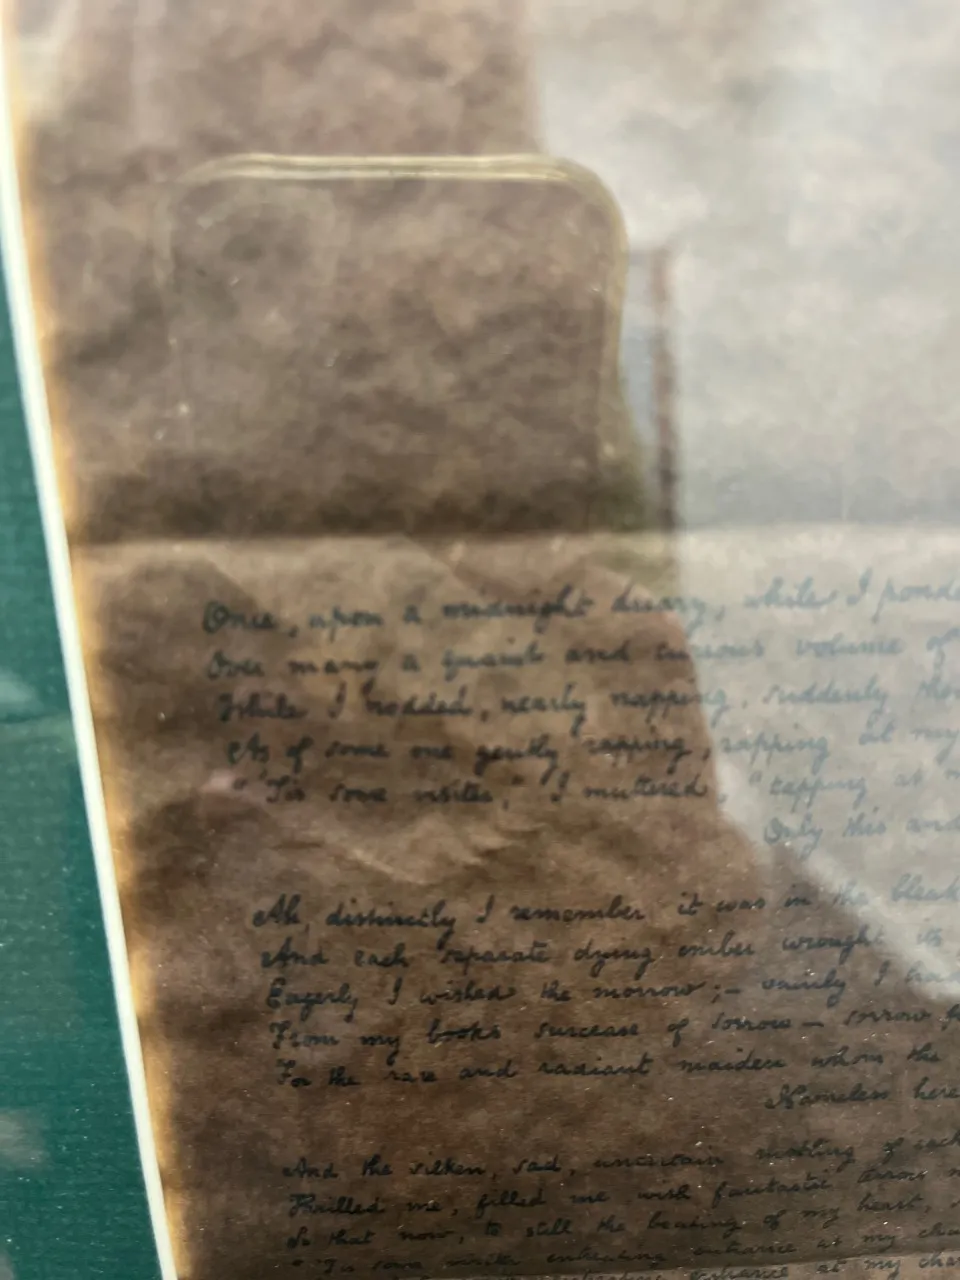 Once, upon a midnight dreary, while I ponde
Over many a quaint and curious volume of
While I nodded, nearly napping, suddenly the
As of some one gently rapping, rapping at my
"'Tis some visiter," I muttered, "tapping at
Only this and
Ah, distinctly I remember it was in the bleak
And each separate dying ember wrought its
Eagerly I wished the morrow;– vainly I had
From my books surcease of sorrow– sorrow fo
For the rare and radiant maiden whom the
Nameless here
And the silken, sad, uncertain rustling of each
Thrilled me, filled me with fantastic terrors
So that now, to still the beating of my heart,
"'Tis some visiter entreating entrance at my cha
entrance at my cha